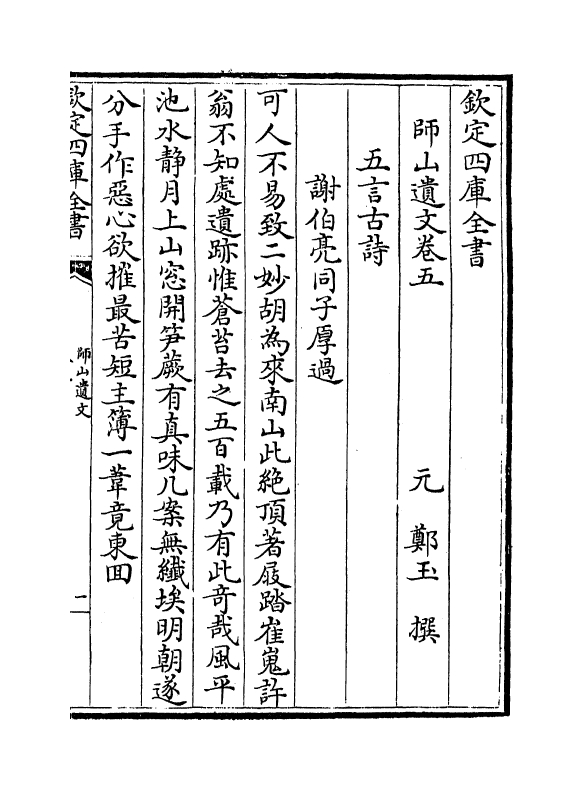 欽定四庫全書
師山遺文卷五
元　鄭玉　撰
五言古詩
謝伯亮同子厚過
可人不易致二妙胡為來南山此絶頂著屐踏崔嵬許
翁不知處遺跡惟蒼苔去之五百載乃有此竒哉風平
池水靜月上山窓開笋蕨有真味几案無纖埃明朝遂
分手作惡心欲摧最苦短主簿一葦竟東囘
欽定四庫全書
師山遺文